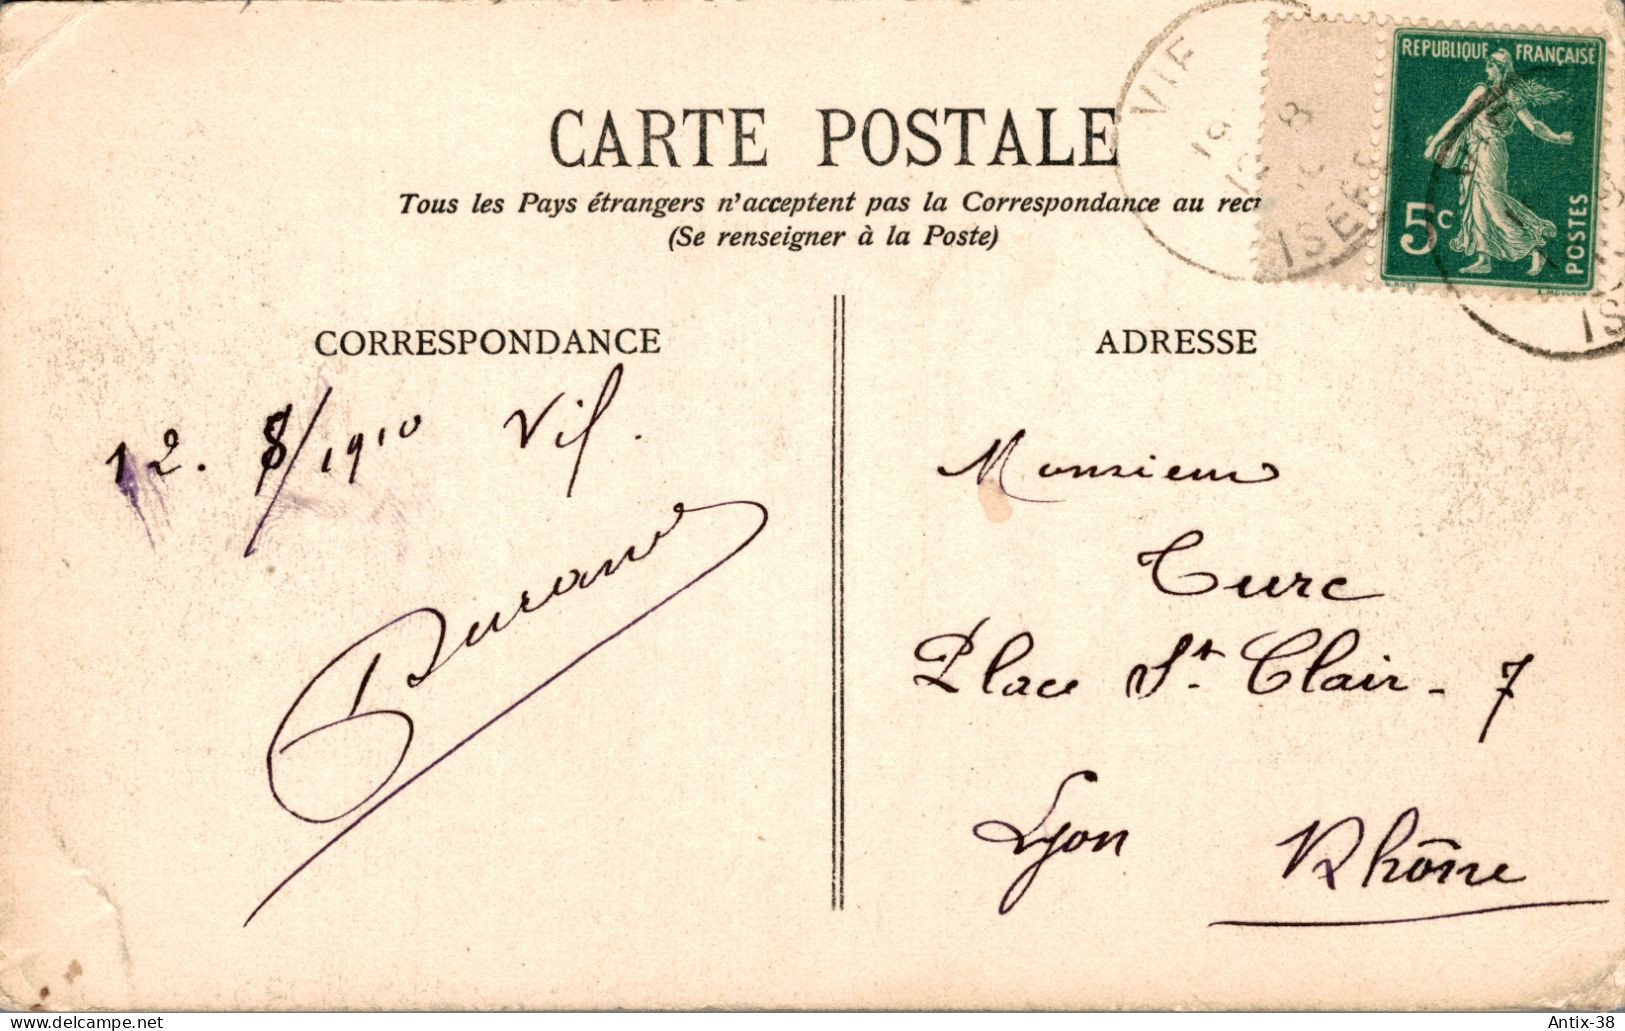 CARTE POSTALE
Tous les Pays étrangers n'acceptent pas la Correspondance au rec
(Se renseigner à la Poste)
VIF
ISERE
REPUBLIQUE FRANÇAISE
5c
POSTES
CORRESPONDANCE
12. 8/1910 Vif.
Durand
ADRESSE
Monsieur
Turc
Place St. Clair - 7
Lyon Rhône
Antix-38